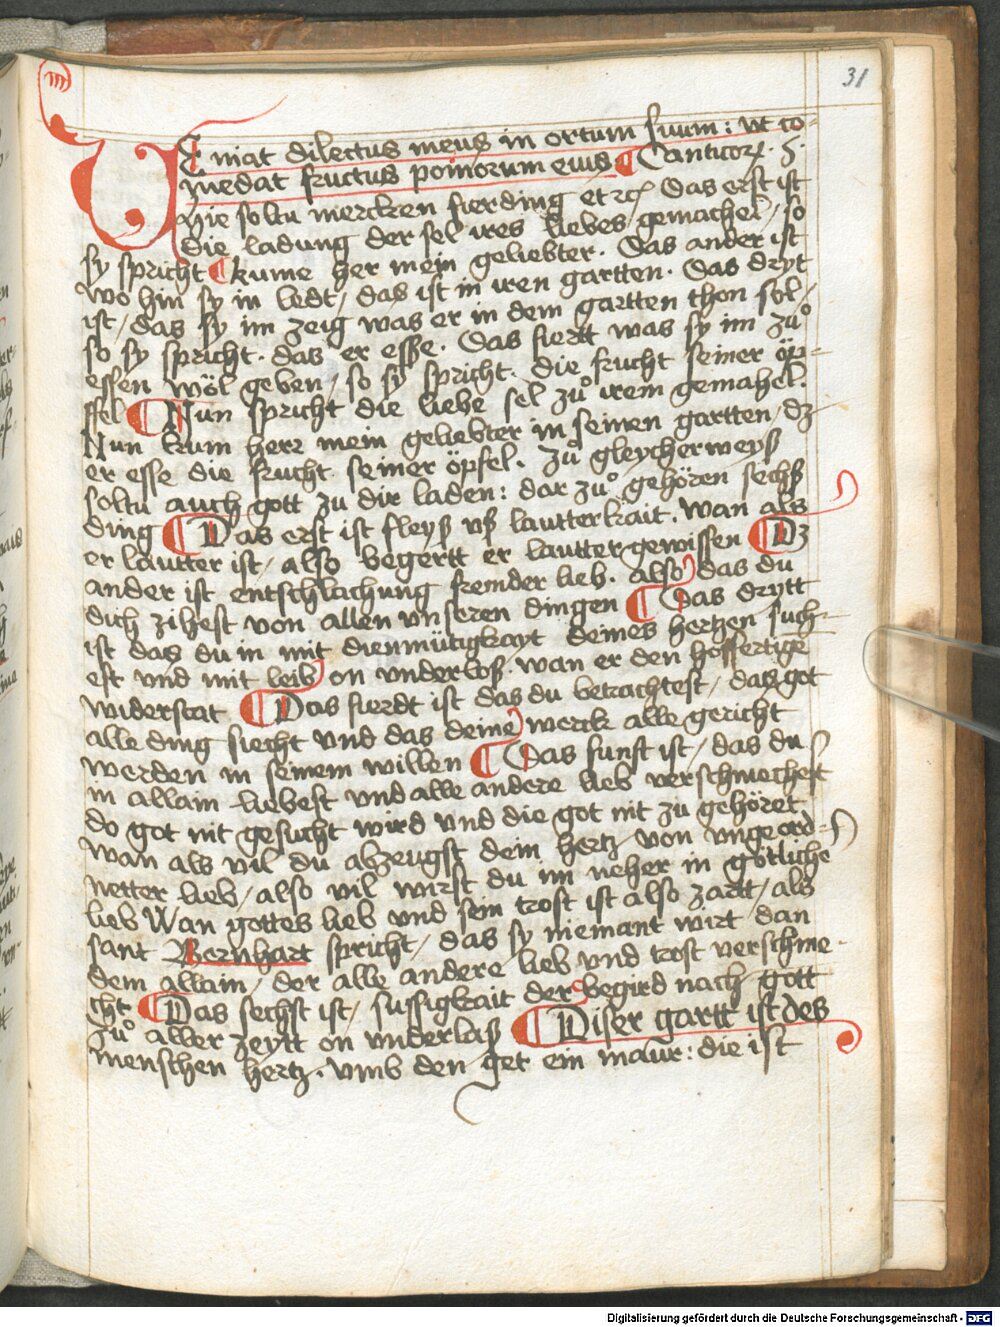 31
VEniat dilectus meus in ortum suum: ut co-
medat fructus pomorum eius ¶ Canticorum. 5.
Hie soltu mercken fierding etc. Das erst ist
die ladung der sel ires liebes gemachel / so
sy spricht ¶ kume her mein geliebter. Das ander ist
wo hin sy in ledt / das ist in iren gartten. Das dryt
ist / das sy im zeig was er in dem gartten thon sol /
so sy spricht. das er esse. Das fiertt was sy im zuͦ
essen wöl geben / so sy spricht. die frucht seiner öp-
ffel ¶ Nun spricht die liebe sel zuͦ irem gemahel.
Nun kum herr mein geliebter in seinen gartten / dz
er esse die frucht seiner öpfel. Zuͦ gleycherweyß
soltu auch gott zu dir laden: dar zuͦ gehören sechß
ding ¶ Das erst ist fleyß uff lautterkait. wan als
er lautter ist / also begertt er lautter gewissen ¶ Dz
ander ist entschlachung fremder lieb. also das du
dich zihest von allen unseren dingen ¶ Das drytt
ist das du in mit dienmütigkayt deines hertzen such-
est und mit leib on underloß. wan er den hoffertige
widerstat ¶ Das fierdt ist das du betrachtest / das got
alle ding siecht und das deine werck alle gericht
werden in seinem willen ¶ Das funft ist / das du
in allain liebest und alle andere lieb verschmechest
do got nit gesucht wird und die got nit zu gehöret
wan als vil du abzeugst dein hertz von ungeord-
netter lieb / also vil wirst du im neher in götliche
lieb Wan gottes lieb und sein trost ist also zartt / als
sant Bernhart spricht / das sy niemant wirt dan
dem allain / der alle andere lieb und trost verschme-
cht ¶ Das sechst ist / sussigkait der begird nach gott
zuͦ aller zeytt on underlaß ¶ Diser gartt ist des
menschen hertz. umb den get ein maur: die ist
Digitalisierung gefördert durch die Deutsche Forschungsgemeinschaft - DFG